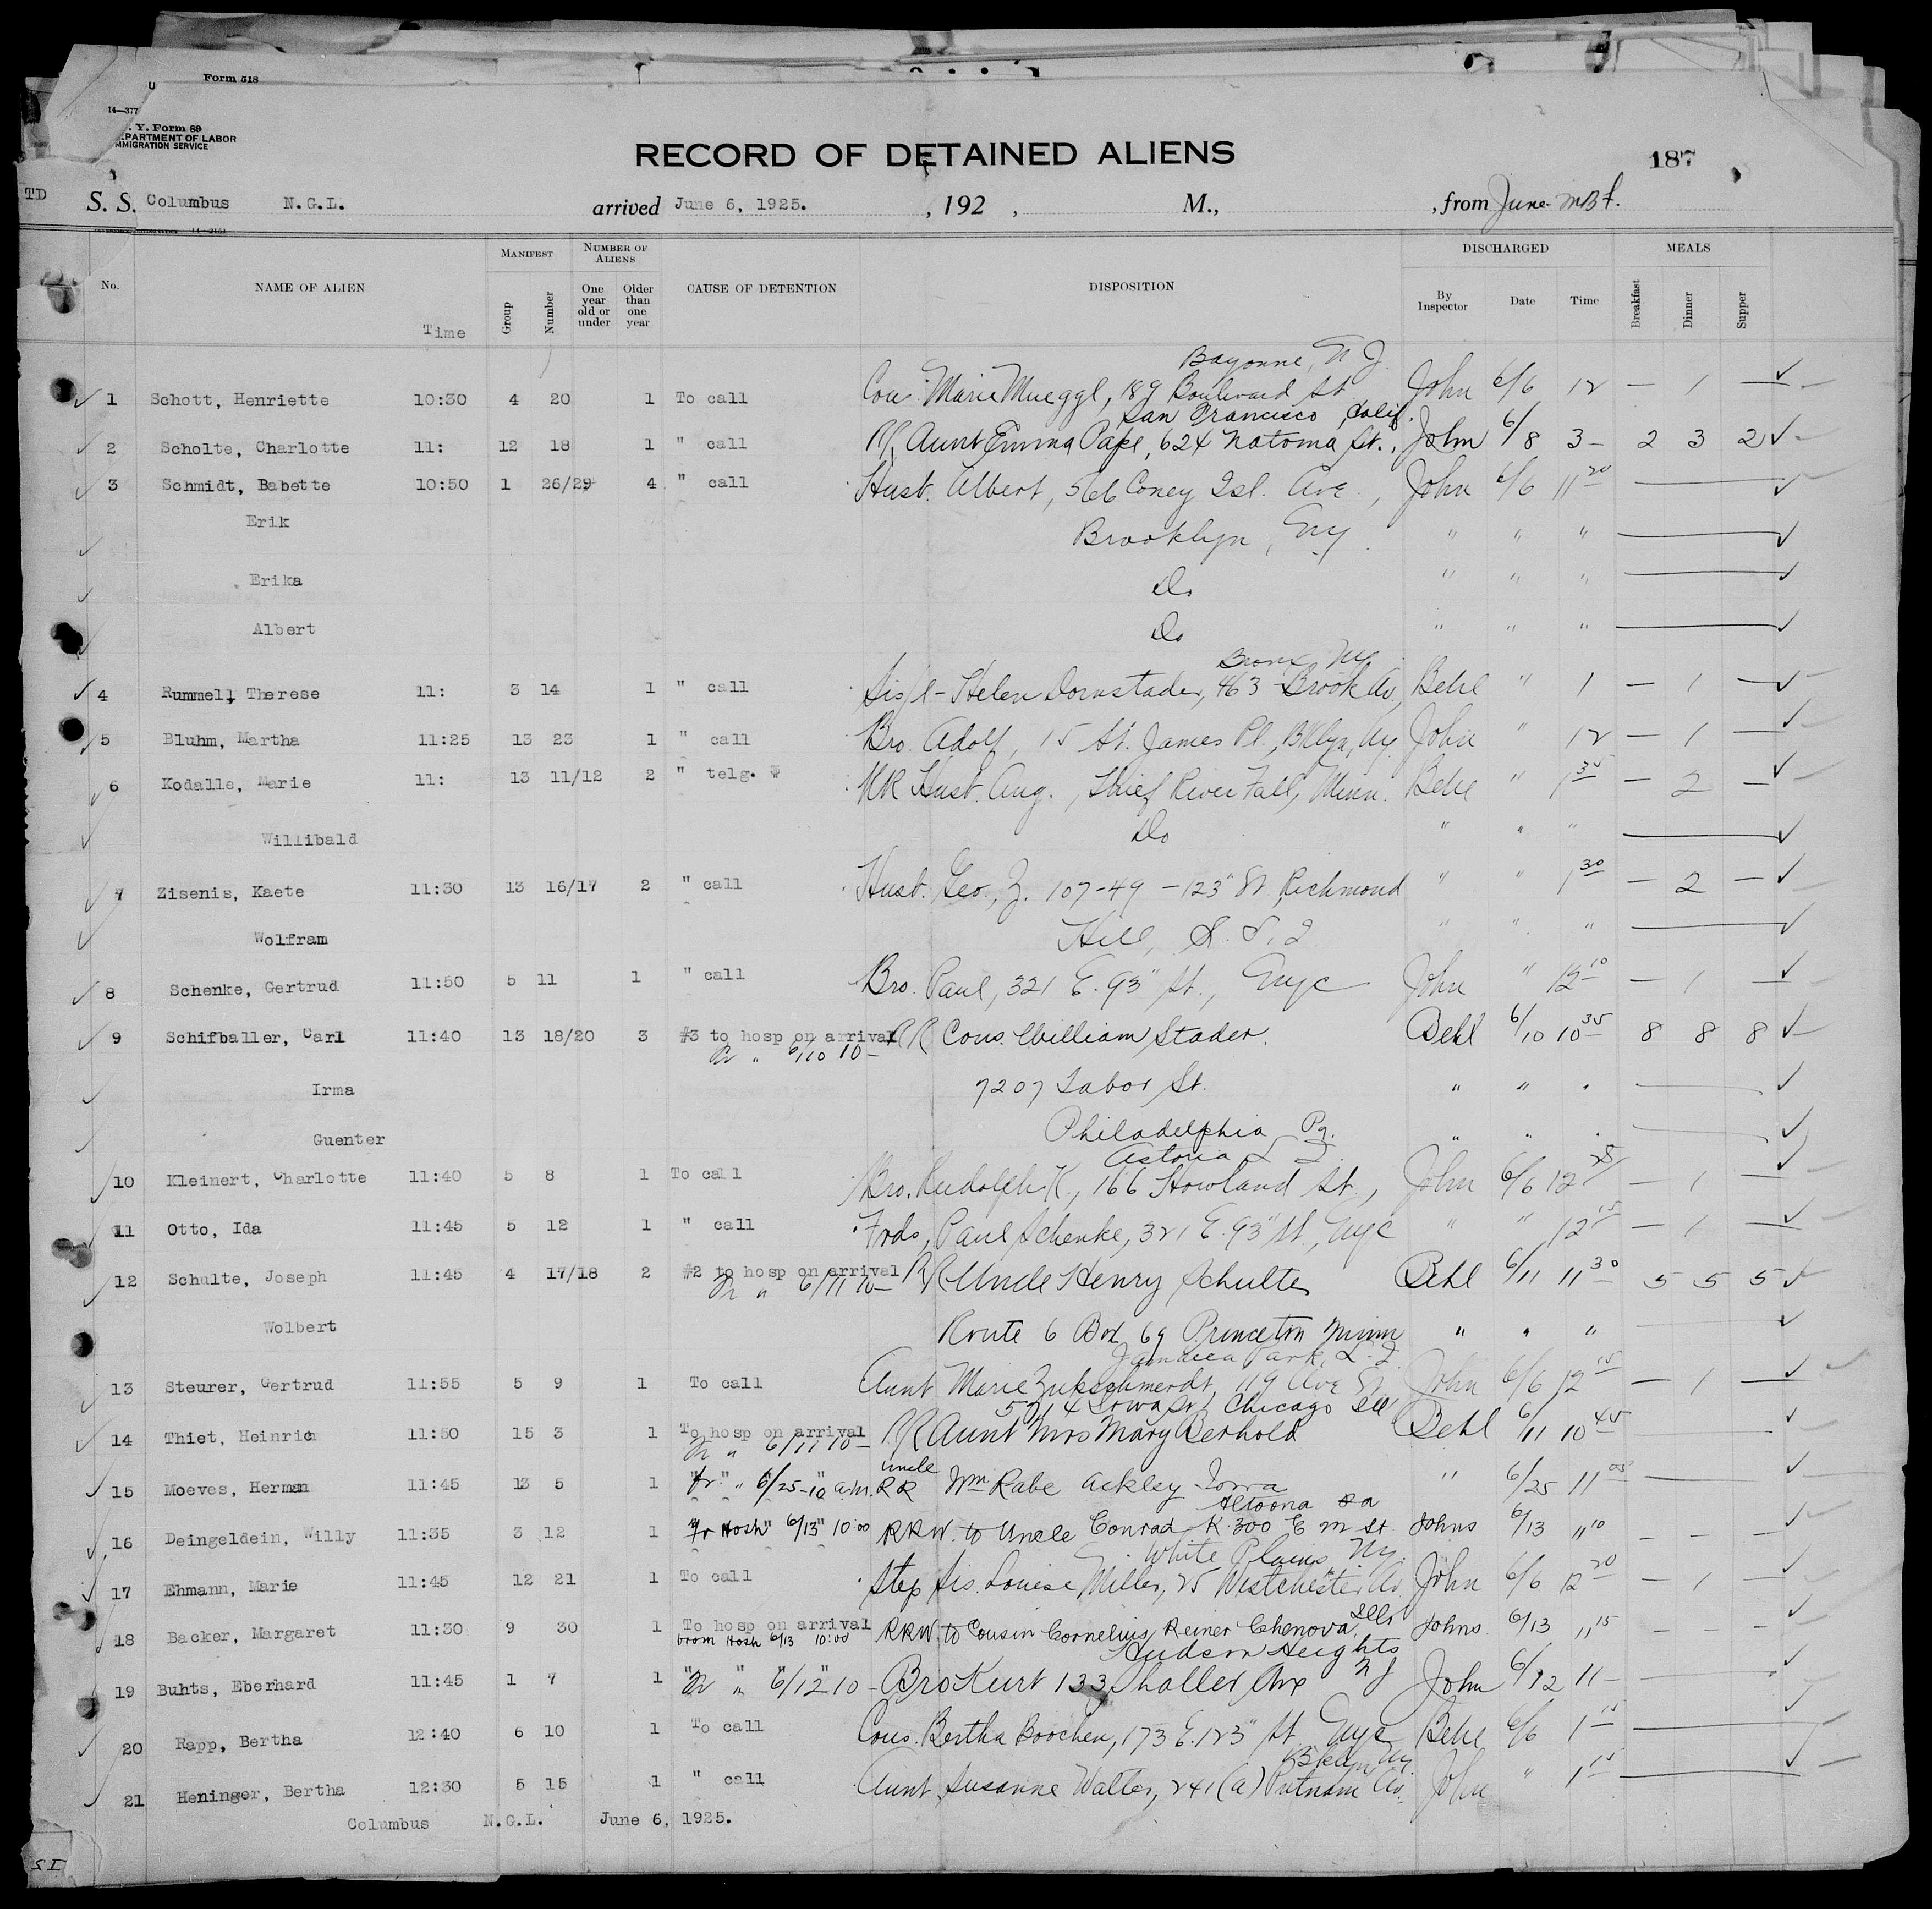 Form 518
14—377
. Y. Form 89
EPARTMENT OF LABOR
MMIGRATION SERVICE
RECORD OF DETAINED ALIENS
187
TD
S. S. Columbus N.G.L. arrived June 6, 1925. , 192 , M., , from June
No. NAME OF ALIEN Time MANIFEST Group Number NUMBER OF ALIENS One year old or under Older than one year CAUSE OF DETENTION DISPOSITION DISCHARGED By Inspector Date Time MEALS Breakfast Dinner Supper
Bayonne, N J.
1 Schott, Henriette 10:30 4 20 1 To call Cou. Marie Mueggl, 189 Boulevard St John 6/6 12 — 1 —
San Francisco, Calif.
2 Scholte, Charlotte 11: 12 18 1 " call RR Aunt Emma Pape, 624 Natoma St., John 6/8 3- 2 3 2
3 Schmidt, Babette 10:50 1 26/29 4 " call Husb. Albert, 566 Coney Isl. Ave., John 6/6 11 20
Erik Brooklyn, Ny " " "
Erika Do " " "
Albert Do " " "
Bronx Ny
4 Rummell, Therese 11: 3 14 1 " call Sis/l - Helen Dornstader, 463 Brook Av, Behl " 1 — 1 —
5 Bluhm, Martha 11:25 13 23 1 " call Bro. Adolf, 15 St. James Pl., Bklyn, Ny John " 12 — 1 —
6 Kodalle, Marie 11: 13 11/12 2 " telg. RR Husb. Aug., Thief River Fall, Minn. Behl " 1 35 — 2 —
Willibald Do " " "
7 Zisenis, Kaete 11:30 13 16/17 2 " call Husb. Geo. Z. 107-49 - 123" St. Richmond " " 1 30 — 2 —
Wolfram Hill, L. I. " " "
8 Schenke, Gertrud 11:50 5 11 1 " call Bro. Paul, 321 E. 93" St., Nyc John " 12 10 — 1 —
9 Schifballer, Carl 11:40 13 18/20 3 #3 to hosp on arrival RR Cous. William Stader. Behl 6/10 10 35 8 8 8
Fr " 6/10 10-
Irma 7207 Tabor St. " " "
Guenter Philadelphia Pa. " " "
Astoria L I.
10 Kleinert, Charlotte 11:40 5 8 1 To call Bro. Rudolph K., 166 Howland St., John 6/6 12 25 — 1 —
11 Otto, Ida 11:45 5 12 1 " call Frds, Paul Schenke, 321 E. 93" St., Nyc " " 12 15 — 1 —
12 Schulte, Joseph 11:45 4 17/18 2 #2 to hosp on arrival RR Uncle Henry Schulte Behl 6/11 11 30 5 5 5
Fr " 6/11 10-
Wolbert Route 6 Box 69 Princeton Minn " " "
Jamaica Park, L. I.
13 Steurer, Gertrud 11:55 5 9 1 To call Aunt Marie 119 Ave John 6/6 12 15 — 1 —
5214 Iowa St Chicago Ill
14 Thiet, Heinrich 11:50 15 3 1 To hosp on arrival RR Aunt Mrs Mary Berhold Behl 6/11 10 45
Fr " 6/11 10-
uncle
15 Moeves, Herman 11:45 13 5 1 Fr " 6/25-10 a.m. RR Wm Rabe Ackley Iowa " 6/25 11 05
Altoona Pa
16 Deingeldein, Willy 11:35 3 12 1 Fr Hosh 6/13 10:00 RRW. to Uncle Conrad K. 300 E m St. Johns 6/13 11 10 - - -
White Plains, Ny.
17 Ehmann, Marie 11:45 12 21 1 To call Step Sis. Louise Miller, 25 Westchester Av. John 6/6 12 20 — 1 —
18 Backer, Margaret 11:30 9 30 1 To hosp on arrival RRW. to Cousin Cornelius Reiner Chenova, Ills Johns 6/13 11 15 - - -
from Hosh 6/13 10:00
Hudson Heights
19 Buhts, Eberhard 11:45 1 7 1 " " " " Fr " 6/12 10- Bro Kurt 133 Ave N J John 6/12 11-
20 Rapp, Bertha 12:40 6 10 1 To call Cous. Bertha Boochen, 173 E. 123" St. Nyc Behl 6/6 1 15
Bklyn Ny.
21 Heninger, Bertha 12:30 5 15 1 " call Aunt Susanne Walter, 241(a) Putnam Av. John " 1 15
Columbus N.G.L. June 6, 1925.